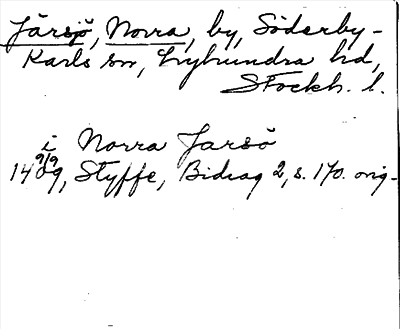 Järsjö, Norra, by, Söderby-
Karls sn, Lyhundra hd,
Stockh. l.
i Norra Jarsö
9/9
1409, Styffe, Bidrag 2, s. 170. orig-